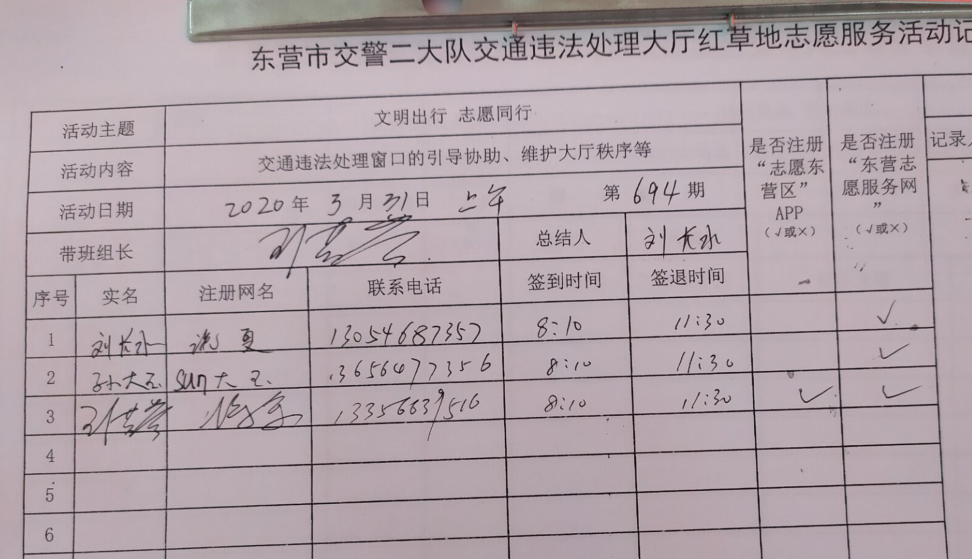 东营市交警二大队交通违法处理大厅红草地志愿服务活动记
活动主题 文明出行 志愿同行
活动内容 交通违法处理窗口的引导协助、维护大厅秩序等
活动日期 2020年 3月31日 上午 第694期
带班组长 总结人 刘长水
是否注册“志愿东营区”APP（√或×）
是否注册“东营志愿服务网”（√或×）
记录人
序号 实名 注册网名 联系电话 签到时间 签退时间
1 刘长水 夏 13054687357 8:10 11:30 ✓
2 孙大玉 sun大玉 13656477356 8:10 11:30 ✓
3 13356639516 8:10 11:30 ✓ ✓
4
5
6